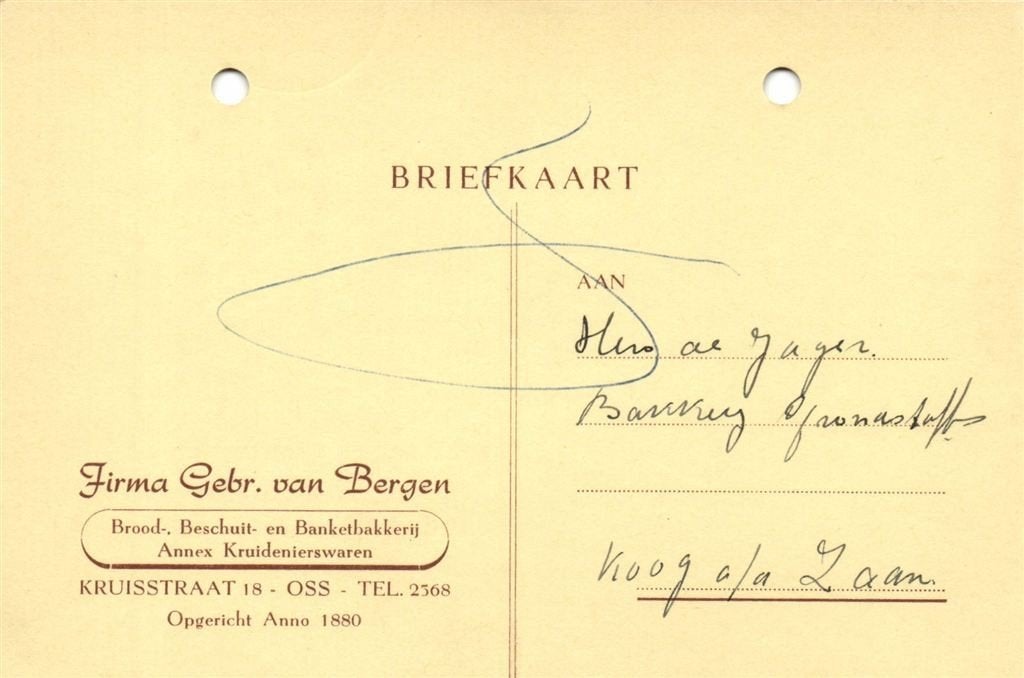 BRIEFKAART
AAN
Hero de Jager.
Bakkerij Grondstoffen
Koog a/a Zaan.
Firma Gebr. van Bergen
Brood-, Beschuit- en Banketbakkerij
Annex Kruidenierswaren
KRUISSTRAAT 18 - OSS - TEL. 2368
Opgericht Anno 1880